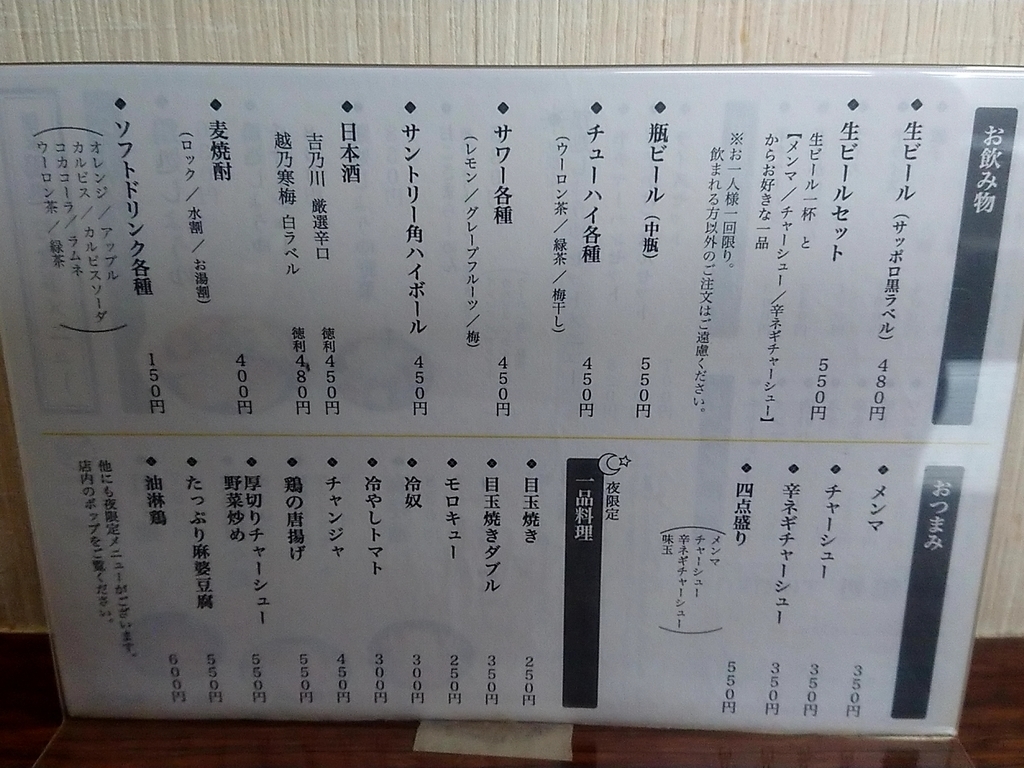 お飲み物
◆生ビール（サッポロ黒ラベル） 480円
◆生ビールセット
生ビール一杯 と 550円
【メンマ／チャーシュー／辛ネギチャーシュー】
からお好きな一品
※お一人様一回限り。
飲まれる方以外のご注文はご遠慮ください。
◆瓶ビール（中瓶） 550円
◆チューハイ各種 450円
（ウーロン茶／緑茶／梅干し）
◆サワー各種 450円
（レモン／グレープフルーツ／梅）
◆サントリー角ハイボール 450円
◆日本酒
吉乃川 厳選辛口 徳利450円
越乃寒梅 白ラベル 徳利480円
◆麦焼酎 400円
（ロック／水割／お湯割）
◆ソフトドリンク各種 150円
（オレンジ／アップル
カルピス／カルピスソーダ
コカコーラ／ラムネ
ウーロン茶／緑茶）
おつまみ
◆メンマ 350円
◆チャーシュー 350円
◆辛ネギチャーシュー 350円
◆四点盛り 550円
（メンマ
チャーシュー
辛ネギチャーシュー
味玉）
夜限定
一品料理
◆目玉焼き 250円
◆目玉焼きダブル 350円
◆モロキュー 250円
◆冷奴 300円
◆冷やしトマト 300円
◆チャンジャ 450円
◆鶏の唐揚げ 550円
◆厚切りチャーシュー
野菜炒め 550円
◆たっぷり麻婆豆腐 550円
◆油淋鶏 600円
他にも夜限定メニューがございます。
店内のポップをご覧ください。